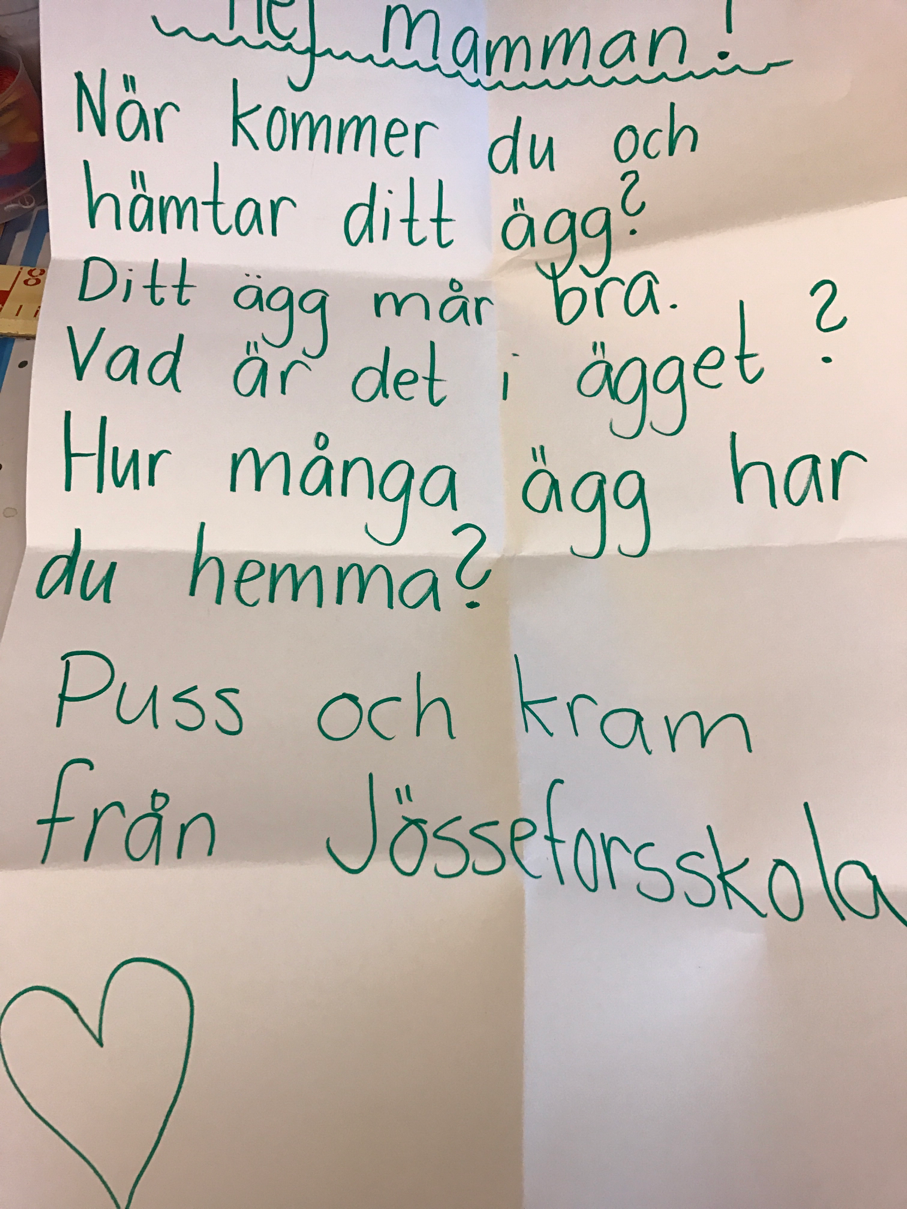 Hej mamman!
När kommer du och
hämtar ditt ägg?
Ditt ägg mår bra.
Vad är det i ägget?
Hur många ägg har
du hemma?
Puss och kram
från Jösseforsskola